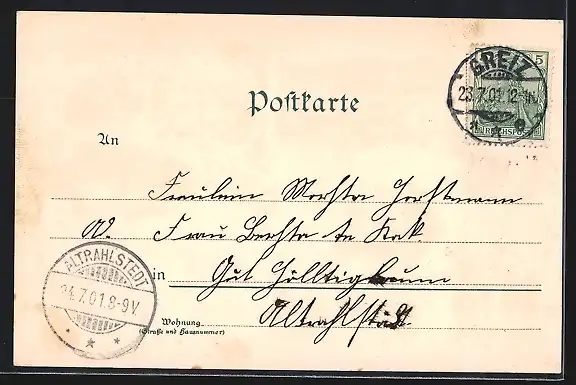 Postkarte
5
REICHSPOST
GREIZ
23.7.01.12-1N.
An
Fräulein Martha Horstmann
Frau Bertha
in
Gut Hölltigbaum
Altrahlstedt
ALTRAHLSTEDT
24.7.01.8-9V.
Wohnung
(Straße und Hausnummer)